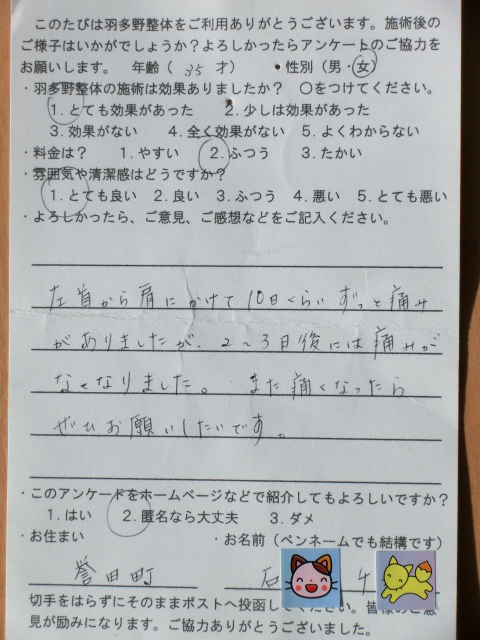 このたびは羽多野整体をご利用ありがとうございます。施術後の
ご様子はいかがでしょうか？よろしかったらアンケートのご協力を
お願いします。 年齢（ 35 才） ・性別（男・女）
・羽多野整体の施術は効果ありましたか？ ○をつけてください。
1. とても効果があった 2. 少しは効果があった
3. 効果がない 4. 全く効果がない 5. よくわからない
・料金は？ 1. やすい 2. ふつう 3. たかい
・雰囲気や清潔感はどうですか？
1. とても良い 2. 良い 3. ふつう 4. 悪い 5. とても悪い
・よろしかったら、ご意見、ご感想などをご記入ください。
左首から肩にかけて10日くらいずっと痛み
がありましたが、2～3日後には痛みが
なくなりました。 また痛くなったら
ぜひお願いしたいです。
・このアンケートをホームページなどで紹介してもよろしいですか？
1. はい 2. 匿名なら大丈夫 3. ダメ
・お住まい ・お名前（ペンネームでも結構です）
誉田町 石
切手をはらずにそのままポストへ投函してください。皆様のご意
見が励みになります。ご協力ありがとうございました。